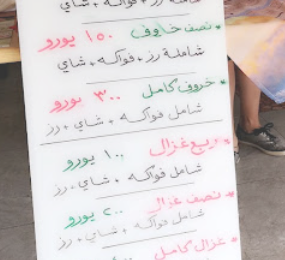 شاملة رز + فواكه + شاي
* نصف خاروف ١٥٠ يورو
شاملة رز + فواكه + شاي
* خروف كامل ٣٠٠ يورو
شامل فواكه + شاي + رز
* ربع غزال ١٠٠ يورو
شامل فواكه + شاي + رز
* نصف غزال ٢٠٠ يورو
شامل فواكه + شاي + رز
* غزال كامل